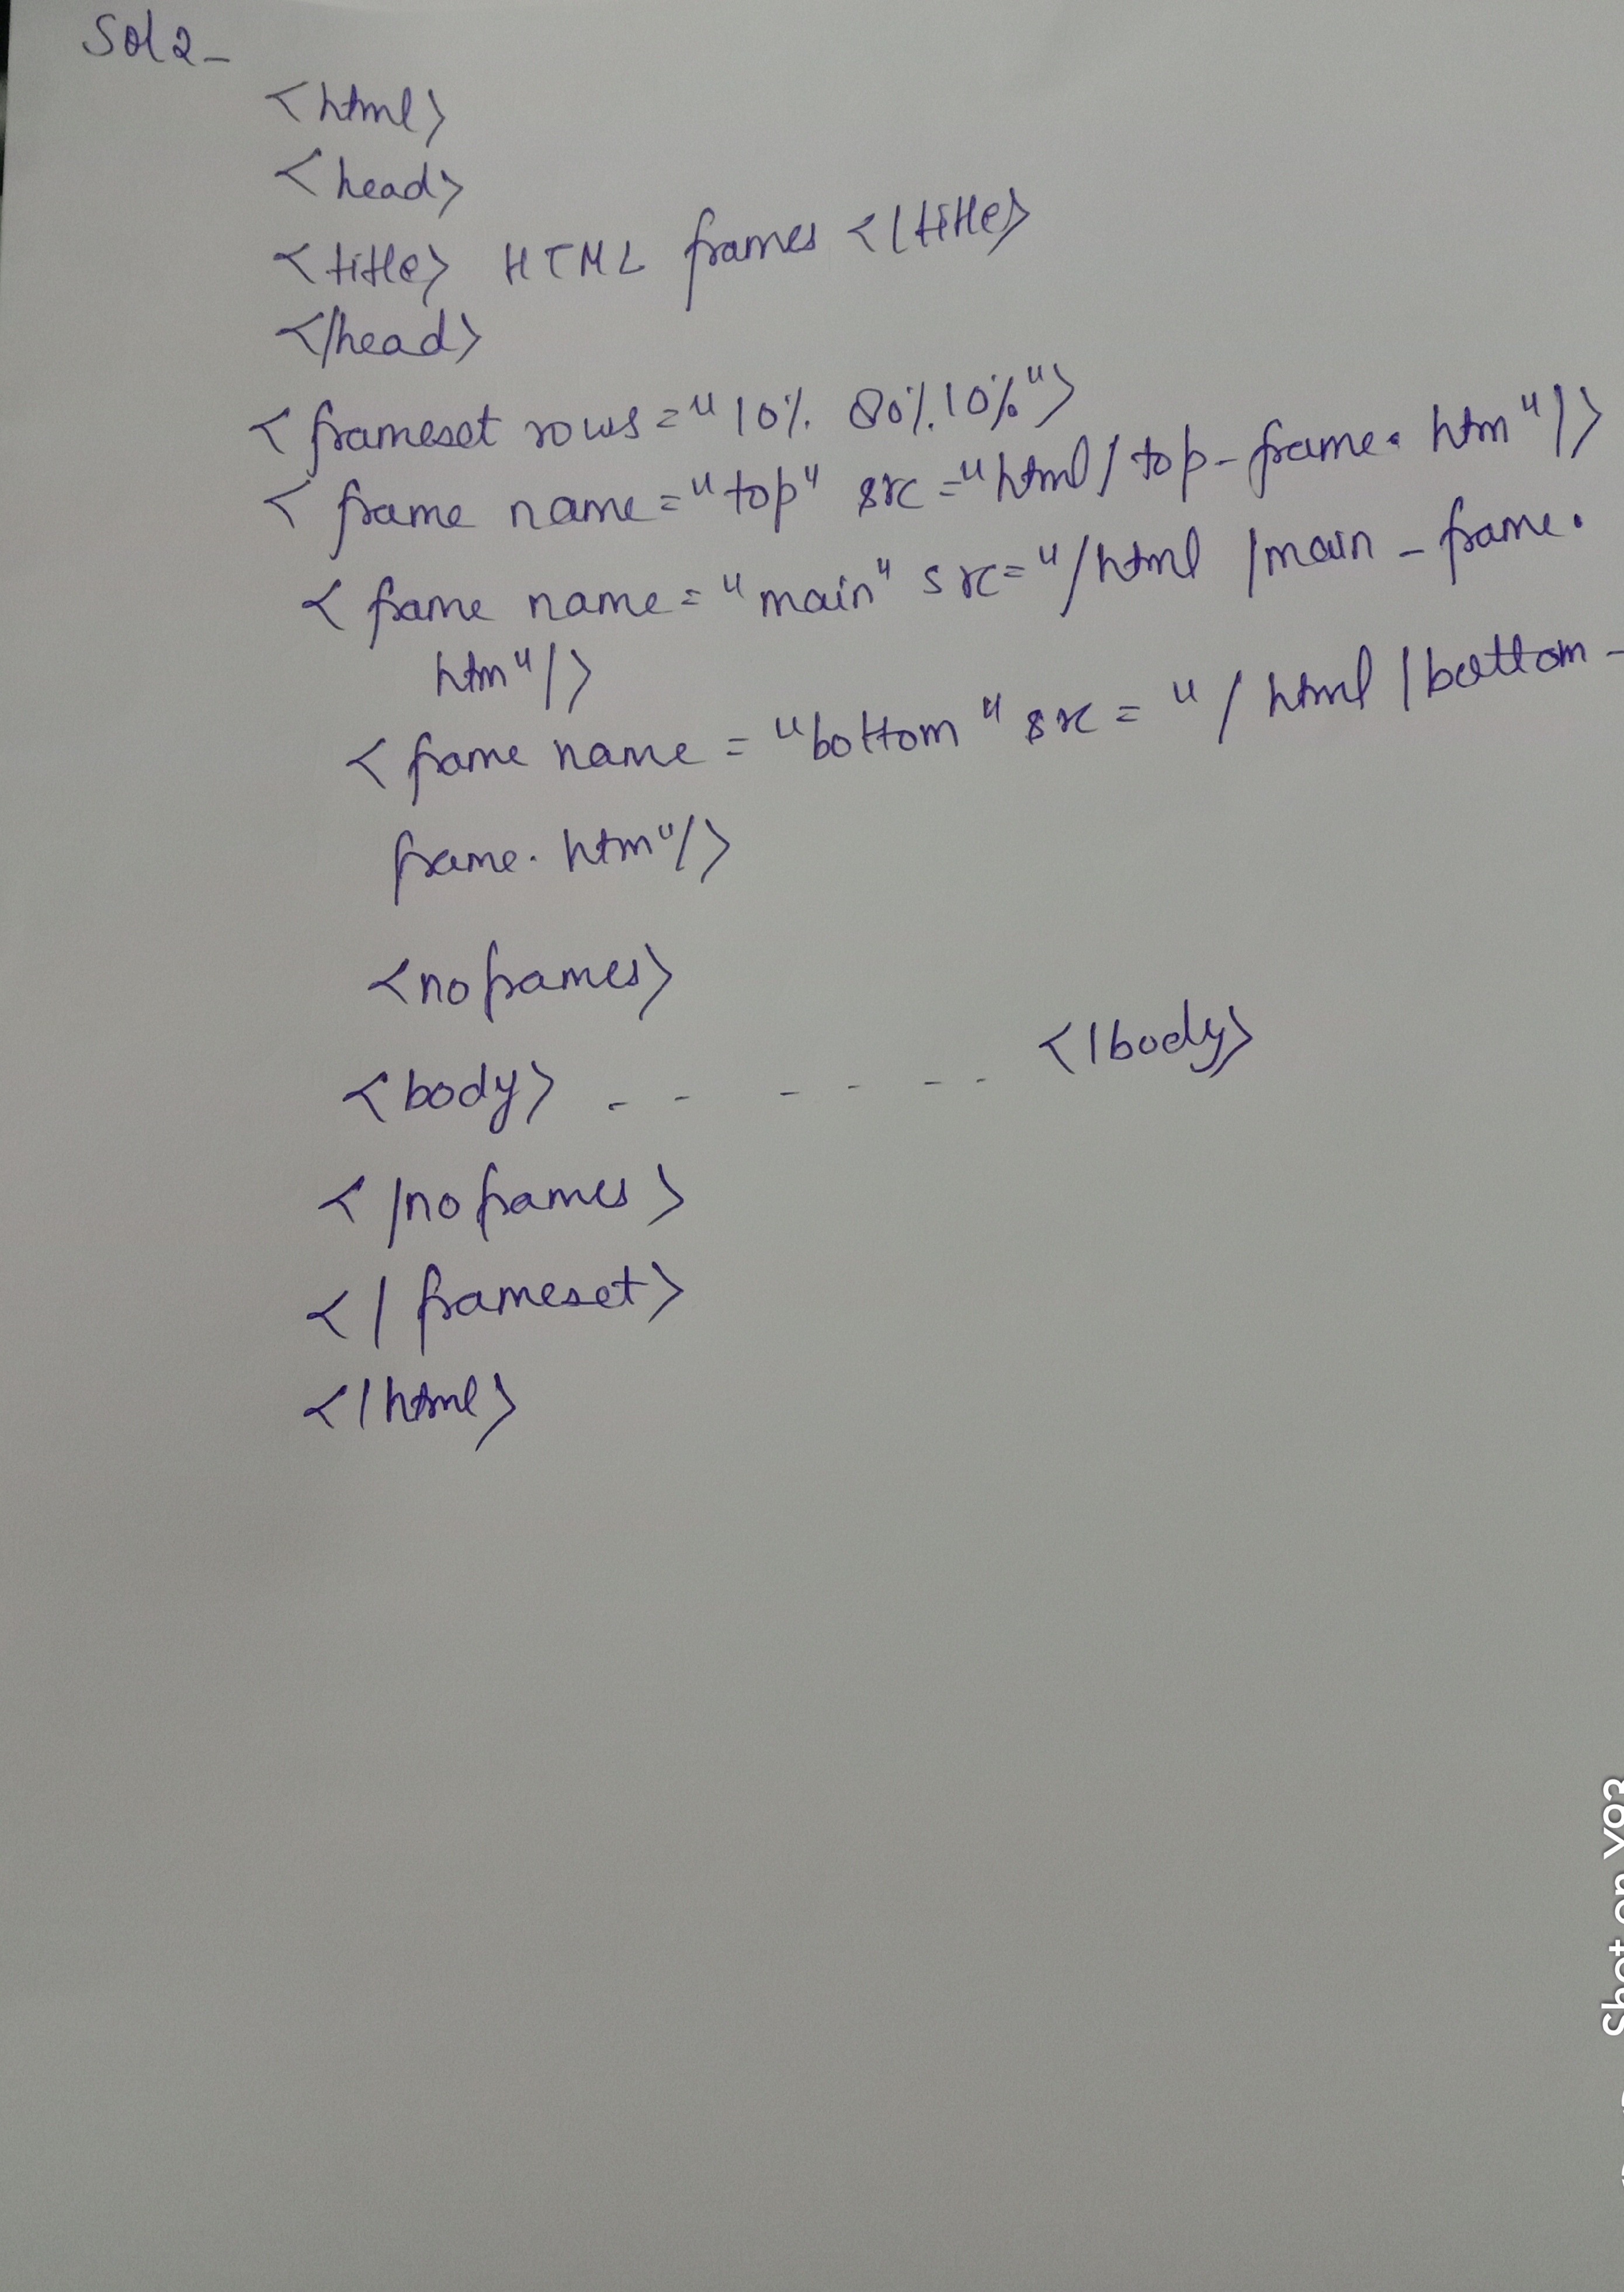 Sol 2-
<html>
<head>
<title> HTML frames </title>
</head>
<frameset rows="10% 80% 10%">
<frame name="top" src="html/top-frame.htm"/>
<frame name="main" src="/html/main-frame.
htm"/>
<frame name="bottom" src="/html/bottom-
frame.htm"/>
<noframes>
<body> - - - - - - </body>
</noframes>
</frameset>
</html>
Shot on Y93